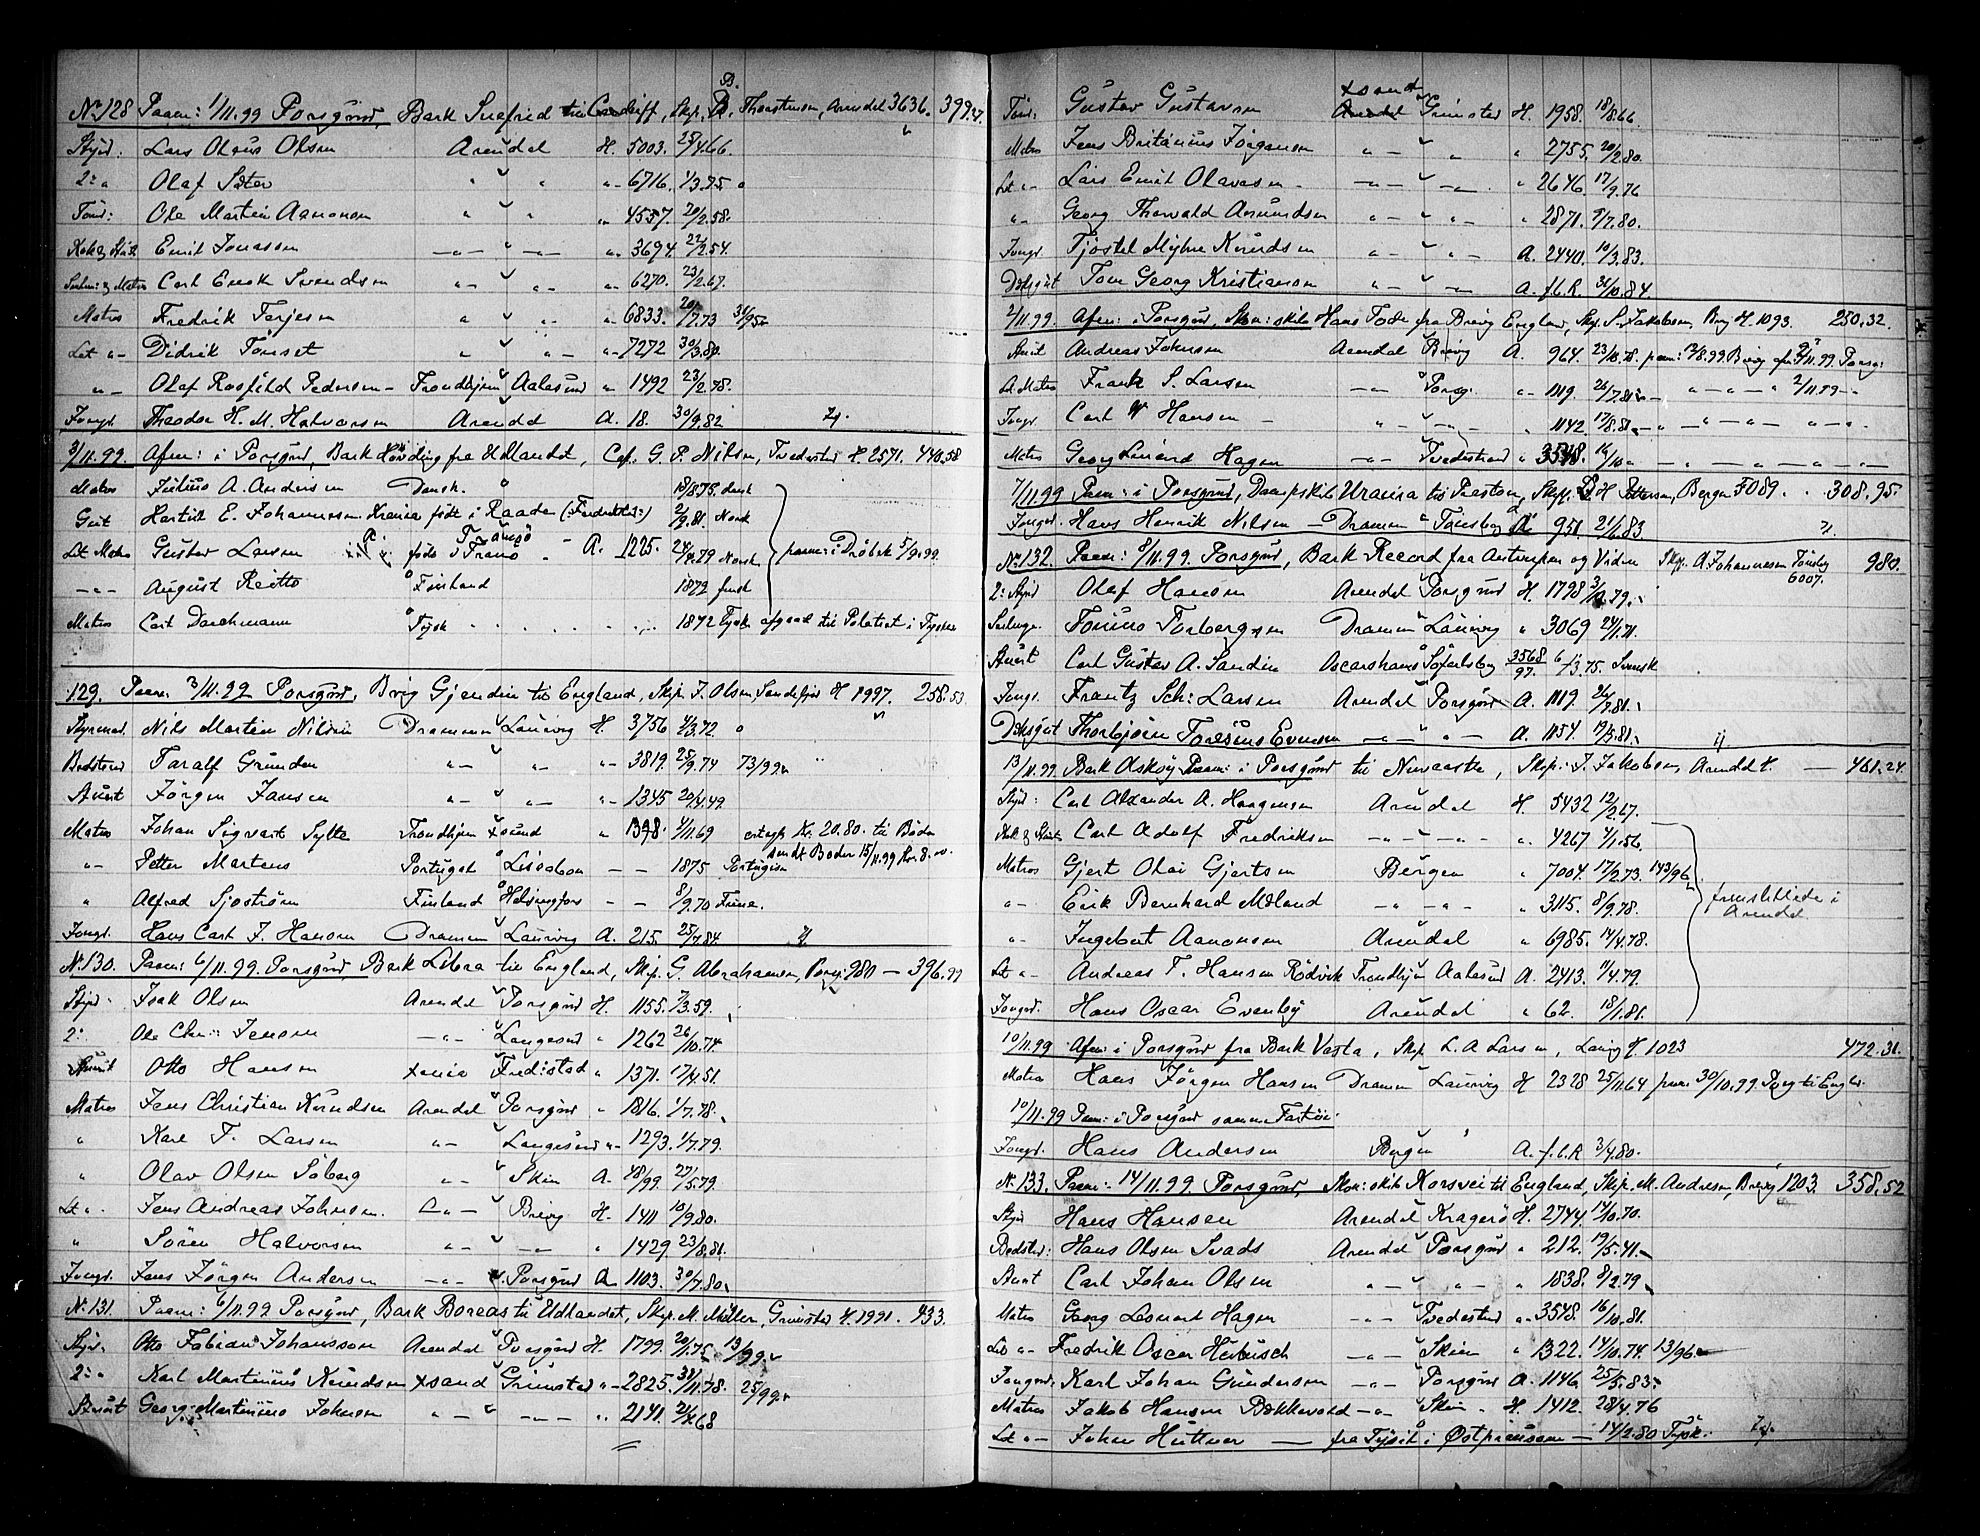 No 128 Paam: 1/11.99 Porsgrund, Bark Snefrid til Cardiff, Skp. B. Thorstensen, Arendal 3636. 399.
Styrd: Lars Olsen Arendal H. 5003. 25/4.66.
2: " Olaf Sæter " " " "- 6716. 1/3.75
Tømd: Ole Martin Aanonsen " " " 4557. 20/2.58.
Kok & Stuert Emil Jonassen - " - " - " - " 3694. 22/2.54.
Matros Carl Enok Svendsen " - " " - " 6270. 23/2.67.
Matros Fredrik Terjesen " " " - 6833. 20/7.73 31/95
Let " - Didrik Tønset " " " - "- 7272 30/3.80.
" - Olaf Rosfild Pedersen - Trondhjem Aalesund " 1492 23/2.78.
Jungd. Theodor H. M. Halvorsen Arendal A. 18. 30/9.82
3/11.99. Afm: i Porsgrund, Bark Høvding fra Udlandet, Cap. G. P. Nilsen, Tvedestrand H. 2571. 440.58
Matros Julius A. Andersen Dansk. 18/8.75. dansk
Gut Hartvik E. Johannessen Xrania født i Raade (Fredrikstad) 2/9.81. Norsk
Let Matros Gustav Larsen født i Tromsø A. 1225. 79 Norsk paam: i Drøbak 5/9.99.
- " - August Reitto Finland 1872 finsk
Matros Carl Darchmann Tysk 1872 Tysk afgaak til Politiet i Tyskla
129. Paam: 3/11.99 Porsgrund, Brig Gjendin til England, Skp. J. Olsen, Sandefjord H 1997. 258.53
Styrmand. Nils Martin Nilsen Drammen Laurvig H. 3756 2/3.72
Bødstmd Taralf Grunden " - " - " - 3819. 25/9.74 73/99
Stuert Jørgen Jansen " - " - " - 1345 20/4.49
Matros Johan Sigvart Sylte Trondhjem Xsund " 1398. 4/11.69 Kr. 20.80. til Bodø
" - Petter Martens Portugal Lissabon - - 1875 Portugiser sendt Bodø 15/11.99 Kr. 8.
" Alfred Sjøstrøm Finland Helsingfors - - 8/9.70 Finne.
Jungd. Hans Carl J. Hansen Drammen Laurvig A. 215. 25/7.84
No 130. Paam: 6/11.99. Porsgrund Bark Libra til England, Skp. G. Abrahamsen, Porsg: 980 - 396.99
Styrd. Isak Olsen Arendal Porsgrund H. 1155. 7/3.59.
2: Ole Chr: Jensen - " - Langesund " 1262 26/10.74.
Stuert Otto Hansen Xania Fredrikstad " 1371. 17/4.51.
Matros Jens Christian Knudsen Arendal Porsgrund " 1816. 1/7.78.
" Karl T. Larsen " - Langesund " - 1293. 1/7.79.
" Olav Olsen Søberg " - Skien A. 48/99. 27/5.79.
Let " - Jens Andreas Johnsen. " - Brevig H. 1411 10/9.80.
" Søren Halvorsen " - - " - " 1429 23/8.81.
Jungd. Jens Jørgen Andersen - " - Porsgrund A 1103. 30/7.80.
No 131. Paam: 6/11.99 Porsgrund, Bark Boreas til Udlandet, Skp. M. Møller, Grimstad H. 1991. 933.
Styrd. Otto Fabian Johansson Arendal Porsgrund H. 1799. 20/1.75 13/99.
2: " Karl Martinius Knudsen Xsand Grimstad " - 2825. 31/11.78. 25/99.
Stuert Georg Martinius Johnsen " - " - " - " 2141. 68
Tømd: Gustav Gustavsen Xsand Grimstad H. 1958. 18/8.66.
Matros Jens Britanius Jørgensen " - " " 2755. 20/2.80.
Let " - Lars Emil Olavesen - - " - - " - " 2646 17/9.76
" - Georg Thorvald Amundsen " - " - " 2871. 9/7.80.
Jungd Tjøstel Myhre Knudsen " - " - A. 2440. 10/3.83.
Dæksgut Tom Georg Kristiansen " - - " - A. f.l.R. 31/10.84.
2/11.99. Afm: i Porsgrund, Skon: skib Hans Tode fra Brevig England, Skp. S. Jakobsen, Brevig H. 1093. 250.32.
Stuert Andreas Johnsen Arendal Brevig A. 964. 23/10.78. paam: 12/8.99 Brevig afm 2/11.99 Porsg:
A. Matros Frank S. Larsen - " - Porsg: " - 1119. 26/7.81 - " - " - " 2/11.99 -
Jungd. Carl W Hansen - " - " - " 1142. 17/8.81. - " - " - " - " -
Matros Georg Linerd Hagen - " - Tvedestrand " 3548. 16/10 " - " - " - " - " -
7/11.99 Paam: i Porsgrund, Dampskib Urania til Preston, Skp. H Pettersen, Bergen 5089. . 308.95.
Jungd. Hans Henrik Nilsen - Drammen Tønsberg A. 951. 21/6.83.
No 132. Paam: 8/11.99. Porsgrund, Bark Record fra Antwerpen og Viden Skp. A. Johannesen Tønsberg 6007. 980.
2: Styrd Olaf Hansen Arendal Porsgrund H. 1798 79.
Tønnes Torbergsen Drammen Laurvig " 3069 24/1.71.
Stuert Carl Gustav A. Sandin Oscarshamn 3568/97. 6/3.75. Svensk
Jungd. Frantz Sch: Larsen Arendal Porsgrund A. 1119. 26/7.81.
Dæksgut Thorbjørn Evensen - " - " - A. 1154. 19/5.81.
13/11.99. Bark Askøy Paam: i Porsgrund til Newcastle, Skp: J. Jakobsen, Arendal. - 461.24.
Styrd: Carl Alexander A. Haagensen Arendal H. 5432 12/2.67.
Kok & Stuert Carl Adolf Fredriksen - " - " - " - " 4267 4/1.56.
Matros Gjert Olai Gjertsen Bergen " 7004. 17/2.73. 143/96.
" - Erik Bernhard Møland - " - " - " 3115. 8/9.78. fremstillede i Arendal.
" - Ingebert Aanonsen Arendal " 6985. 14/4.78.
Let " - Andreas T. Hansen Rødvik Trondhjem Aalesund A. 2413. 11/4.79.
Jungd. Hans Oscar Evenby Arendal " 62. 18/1.81.
10/11.99 Afm: i Porsgrund fra Bark Vasta, Skp. L. A. Larsen, Laurvig H. 1023 472.31.
Matros Hans Jørgen Hansen Drammen Laurvig H 2328 25/11.64 paam 30/10.99 Porsg til Engl.
10/11.99 Paam: i Porsgrund samme Fartøi.
Jungd. Hans Andersen Bergen A. f.l.R 3/4.80.
No 133. Paam: 14/11.99 Porsgrund, Skon: skib Korsvei til England, Skp. M. Andresen, Brevig 1203. 358.52
Styrd Hans Hansen Arendal Kragerø H. 2744. 14/10.70.
Bødstmd: Hans Olsen Svads Arendal Porsgrund " 212. 19/5.41.
Stuert Carl Johan Olsen " - " - " 1838. 8/2.79.
Matros Georg Leonard Hagen " Tvedestrand " 3548. 16/10.81.
Let " - Fredrik Oscar - " - Skien " 1322. 14/10.74. 13/96.
Jungmd. Karl Johan Gundersen - " - Porsgrund A. 1146. 25/5.83.
Matros Jakob Hansen Bækkevold - " - Skien " H. 1412. 28/4.76
Let " - Johan Hüttner - fra Tilsit i Østpreussen - 14/2.80 Tysk.